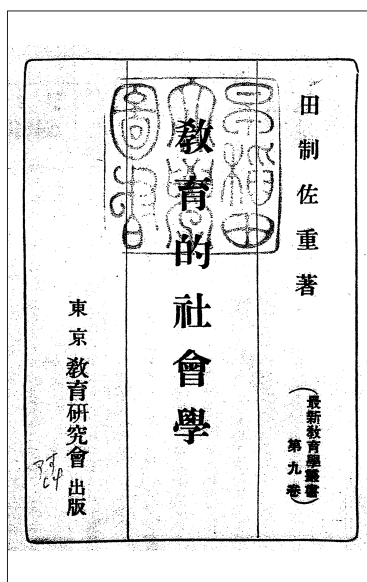 田制佐重著
(最新教育學叢書
第九卷)
教育的社會學
東京 教育研究會 出版